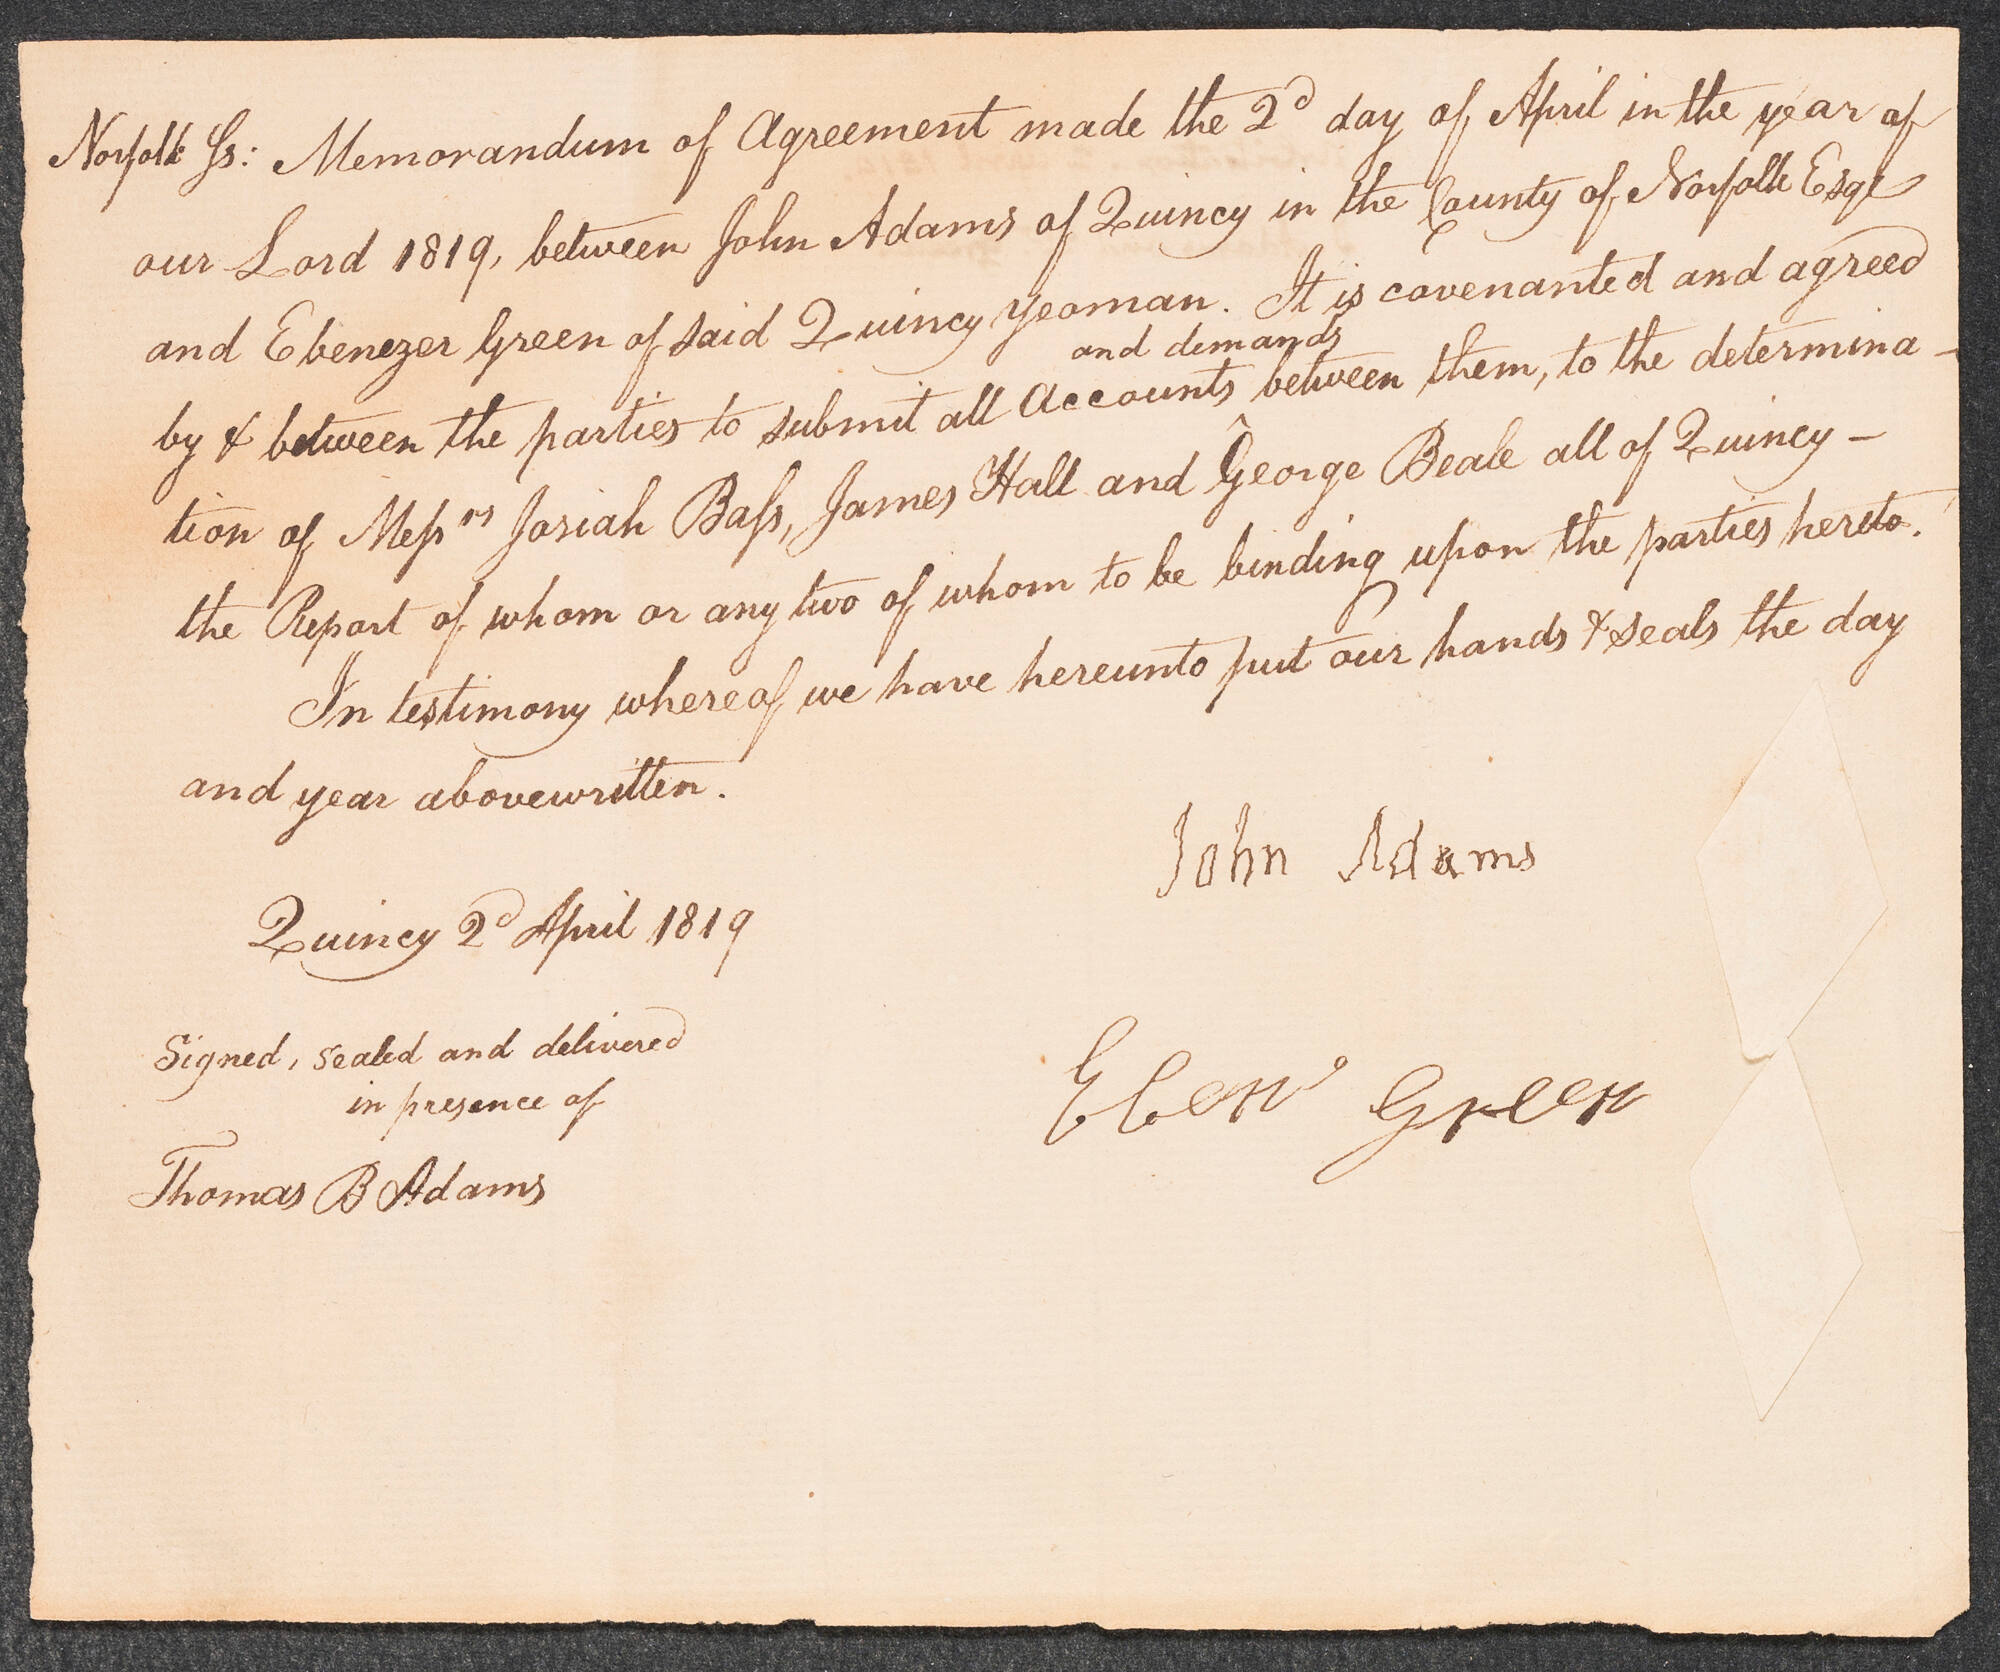 Norfolk Ss: Memorandum of Agreement made the 2d day of April in the year of
our Lord 1819, between John Adams of Quincy in the County of Norfolk Esqr
and Ebenezer Green of said Quincy Yeoman. It is covenanted and agreed
and demands
by & between the parties to submit all Accounts ^ between them, to the determina-
tion of Messrs Josiah Bass, James Hall and George Beale all of Quincy -
the Report of whom or any two of whom to be binding upon the parties hereto.
In testimony whereof we have hereunto put our hands & seals the day
and year abovewritten.
John Adams
Quincy 2d April 1819
Signed, sealed and delivered
in presence of
Ebenr Green
Thomas B Adams